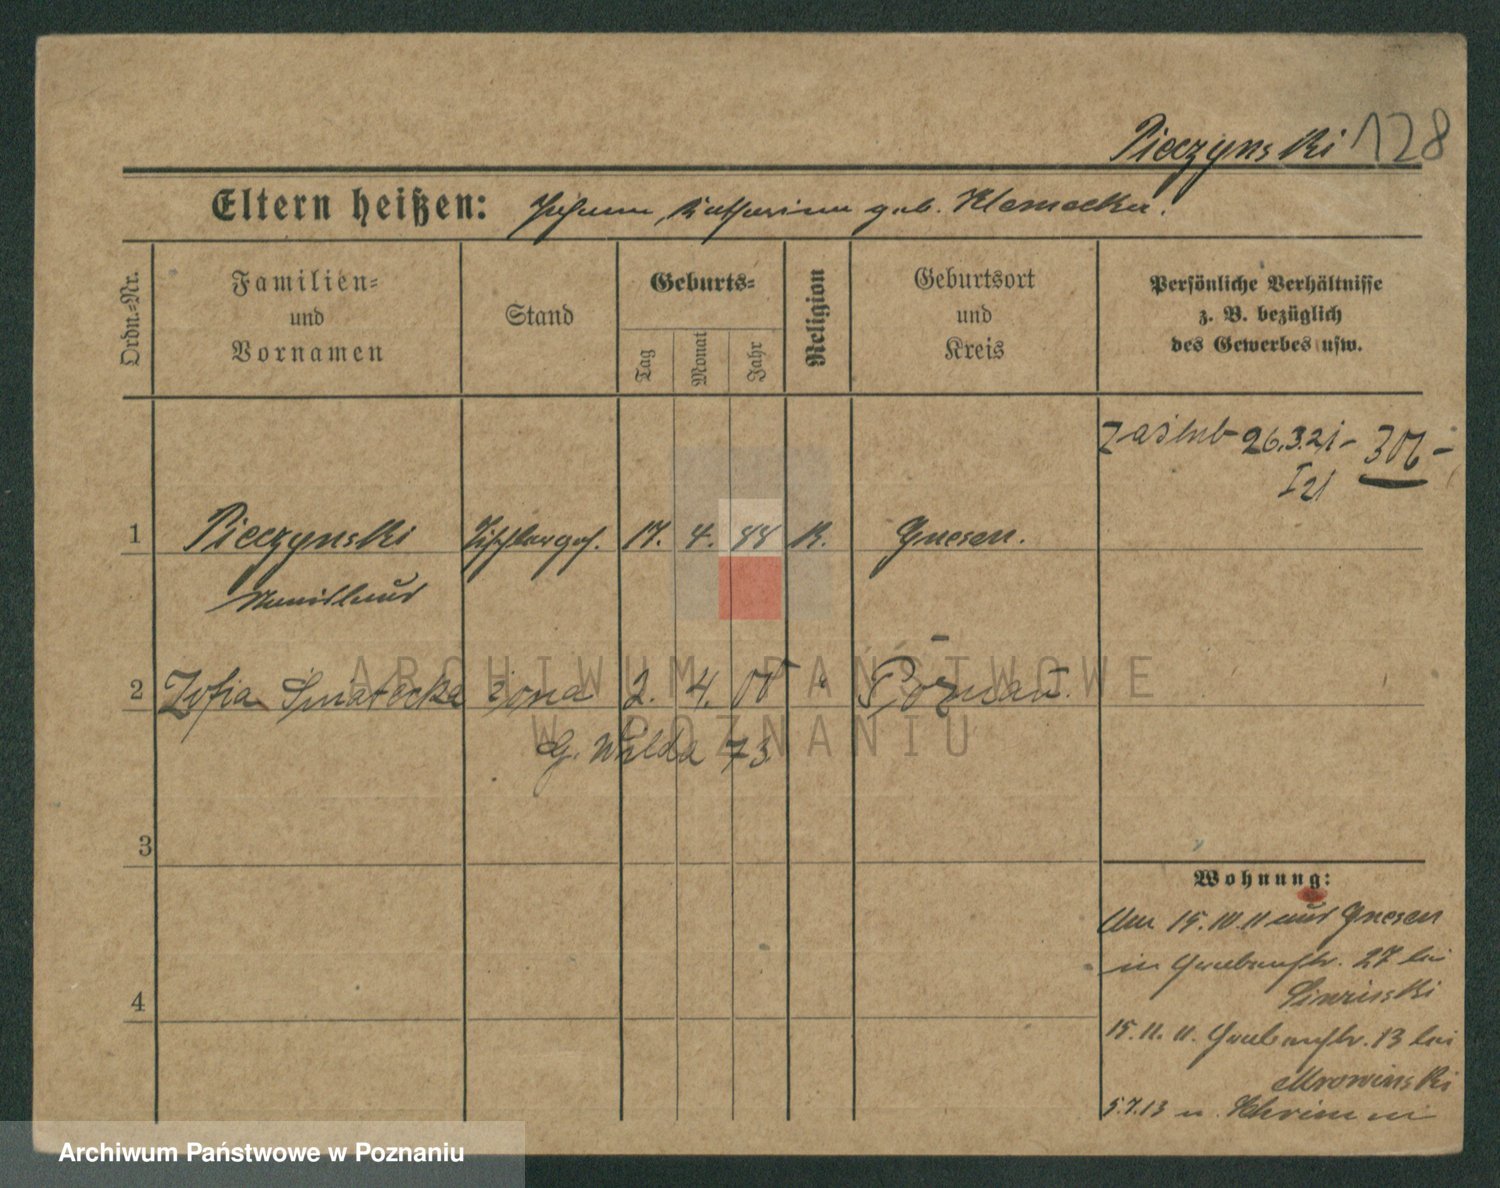 Pieczynski 128
Eltern heißen: Johann, Katharina geb. Klemecka.
Ordn.=Nr.
Familien=
und
Vornamen
Stand
Geburts=
Tag
Monat
Jahr
Religion
Geburtsort
und
Kreis
Persönliche Verhältnisse
z. B. bezüglich
des Gewerbes usw.
zaślub 26.3.21 -
I 21
1 Pieczynski Tischlerges. 17. 4. 88 K. Gnesen.
2 Zofia żona 2. 4. 00 " Poznań.
G. Wilda 73
3
4
Wohnung:
Am 15.10.11 aus Gnesen
in Grabenstr. 27 bei
Siwinski
15.11.11. Grabenstr. 13 bei
Mrowinski
5.7.13 n.
ARCHIWUM PAŃSTWOWE
W POZNANIU
Archiwum Państwowe w Poznaniu